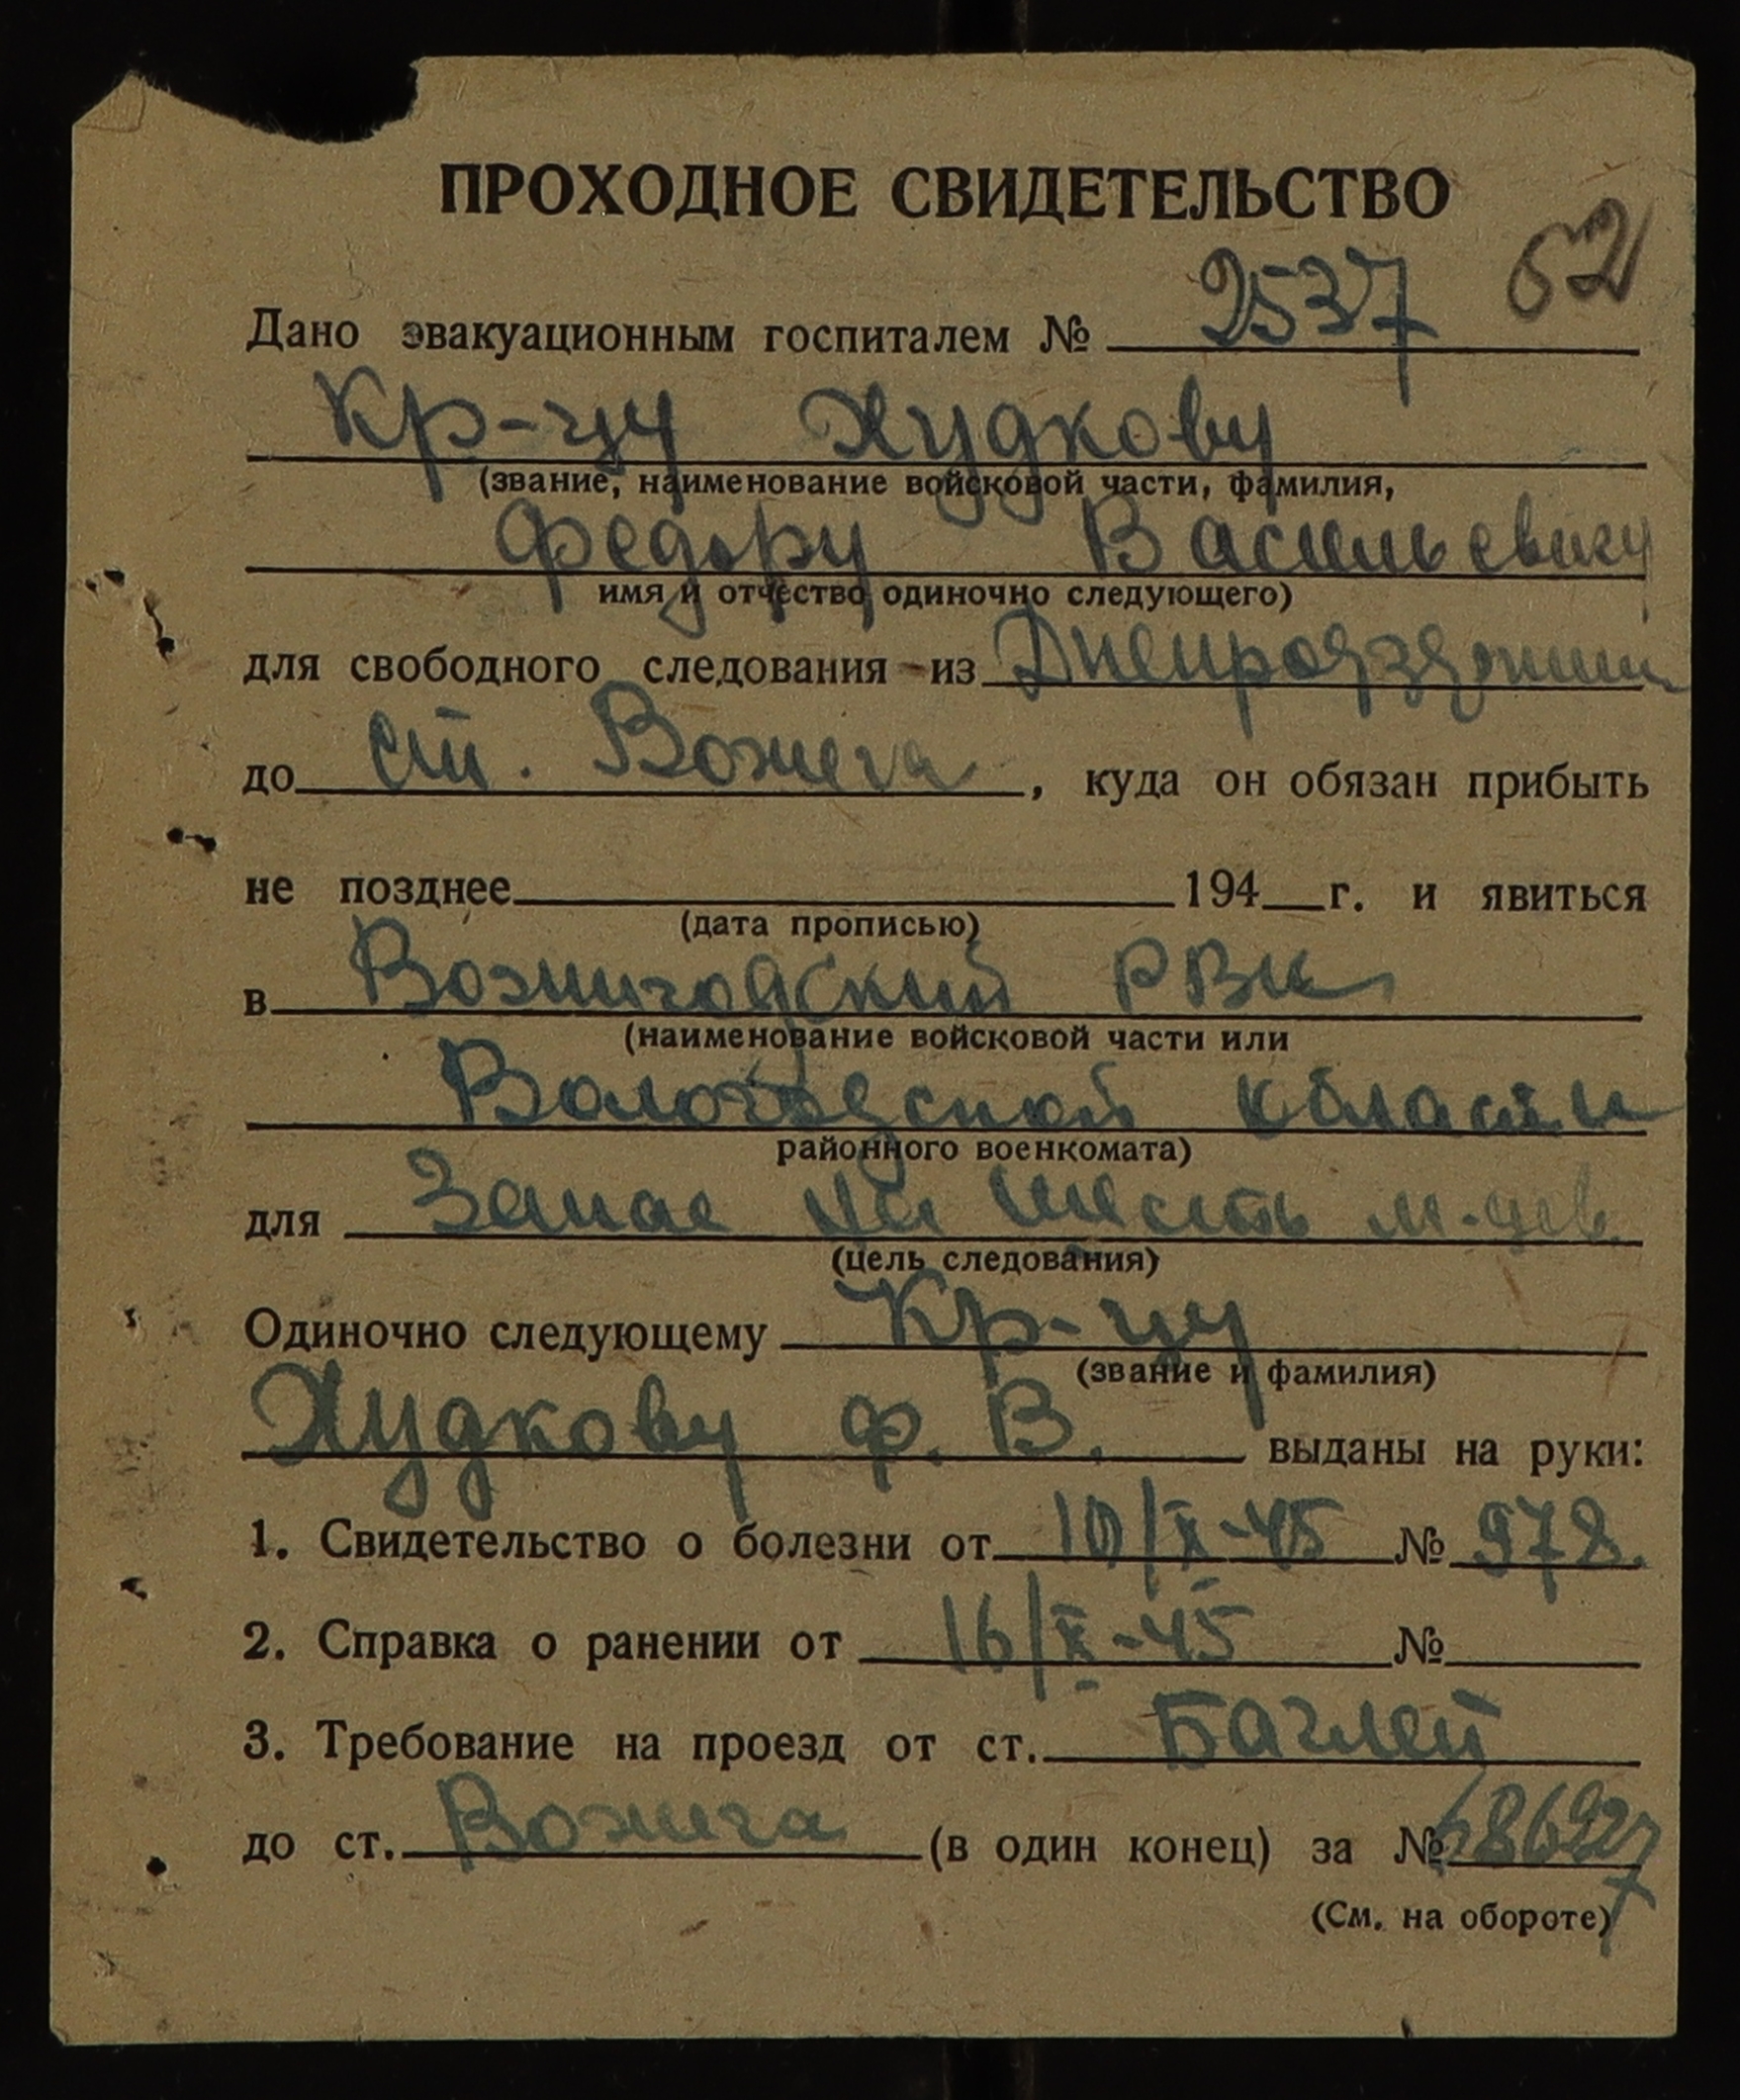 ПРОХОДНОЕ СВИДЕТЕЛЬСТВО
62
Дано эвакуационным госпиталем № 2537
Кр-цу Худкову
(звание, наименование войсковой части, фамилия,
Федору Васильевичу
имя и отчество одиночно следующего)
для свободного следования из
до ст. Вожега, куда он обязан прибыть
не позднее 194 г. и явиться
(дата прописью)
в РВК
(наименование войсковой части или
области
районного военкомата)
для Запас на шесть м-цев.
(цель следования)
Одиночно следующему Кр-цу
(звание и фамилия)
Худкову Ф. В. выданы на руки:
1. Свидетельство о болезни от 10/X-45 № 978.
2. Справка о ранении от 16/X-45 №
3. Требование на проезд от ст. Баглей
до ст. Вожега (в один конец) за № 686927
(См. на обороте)